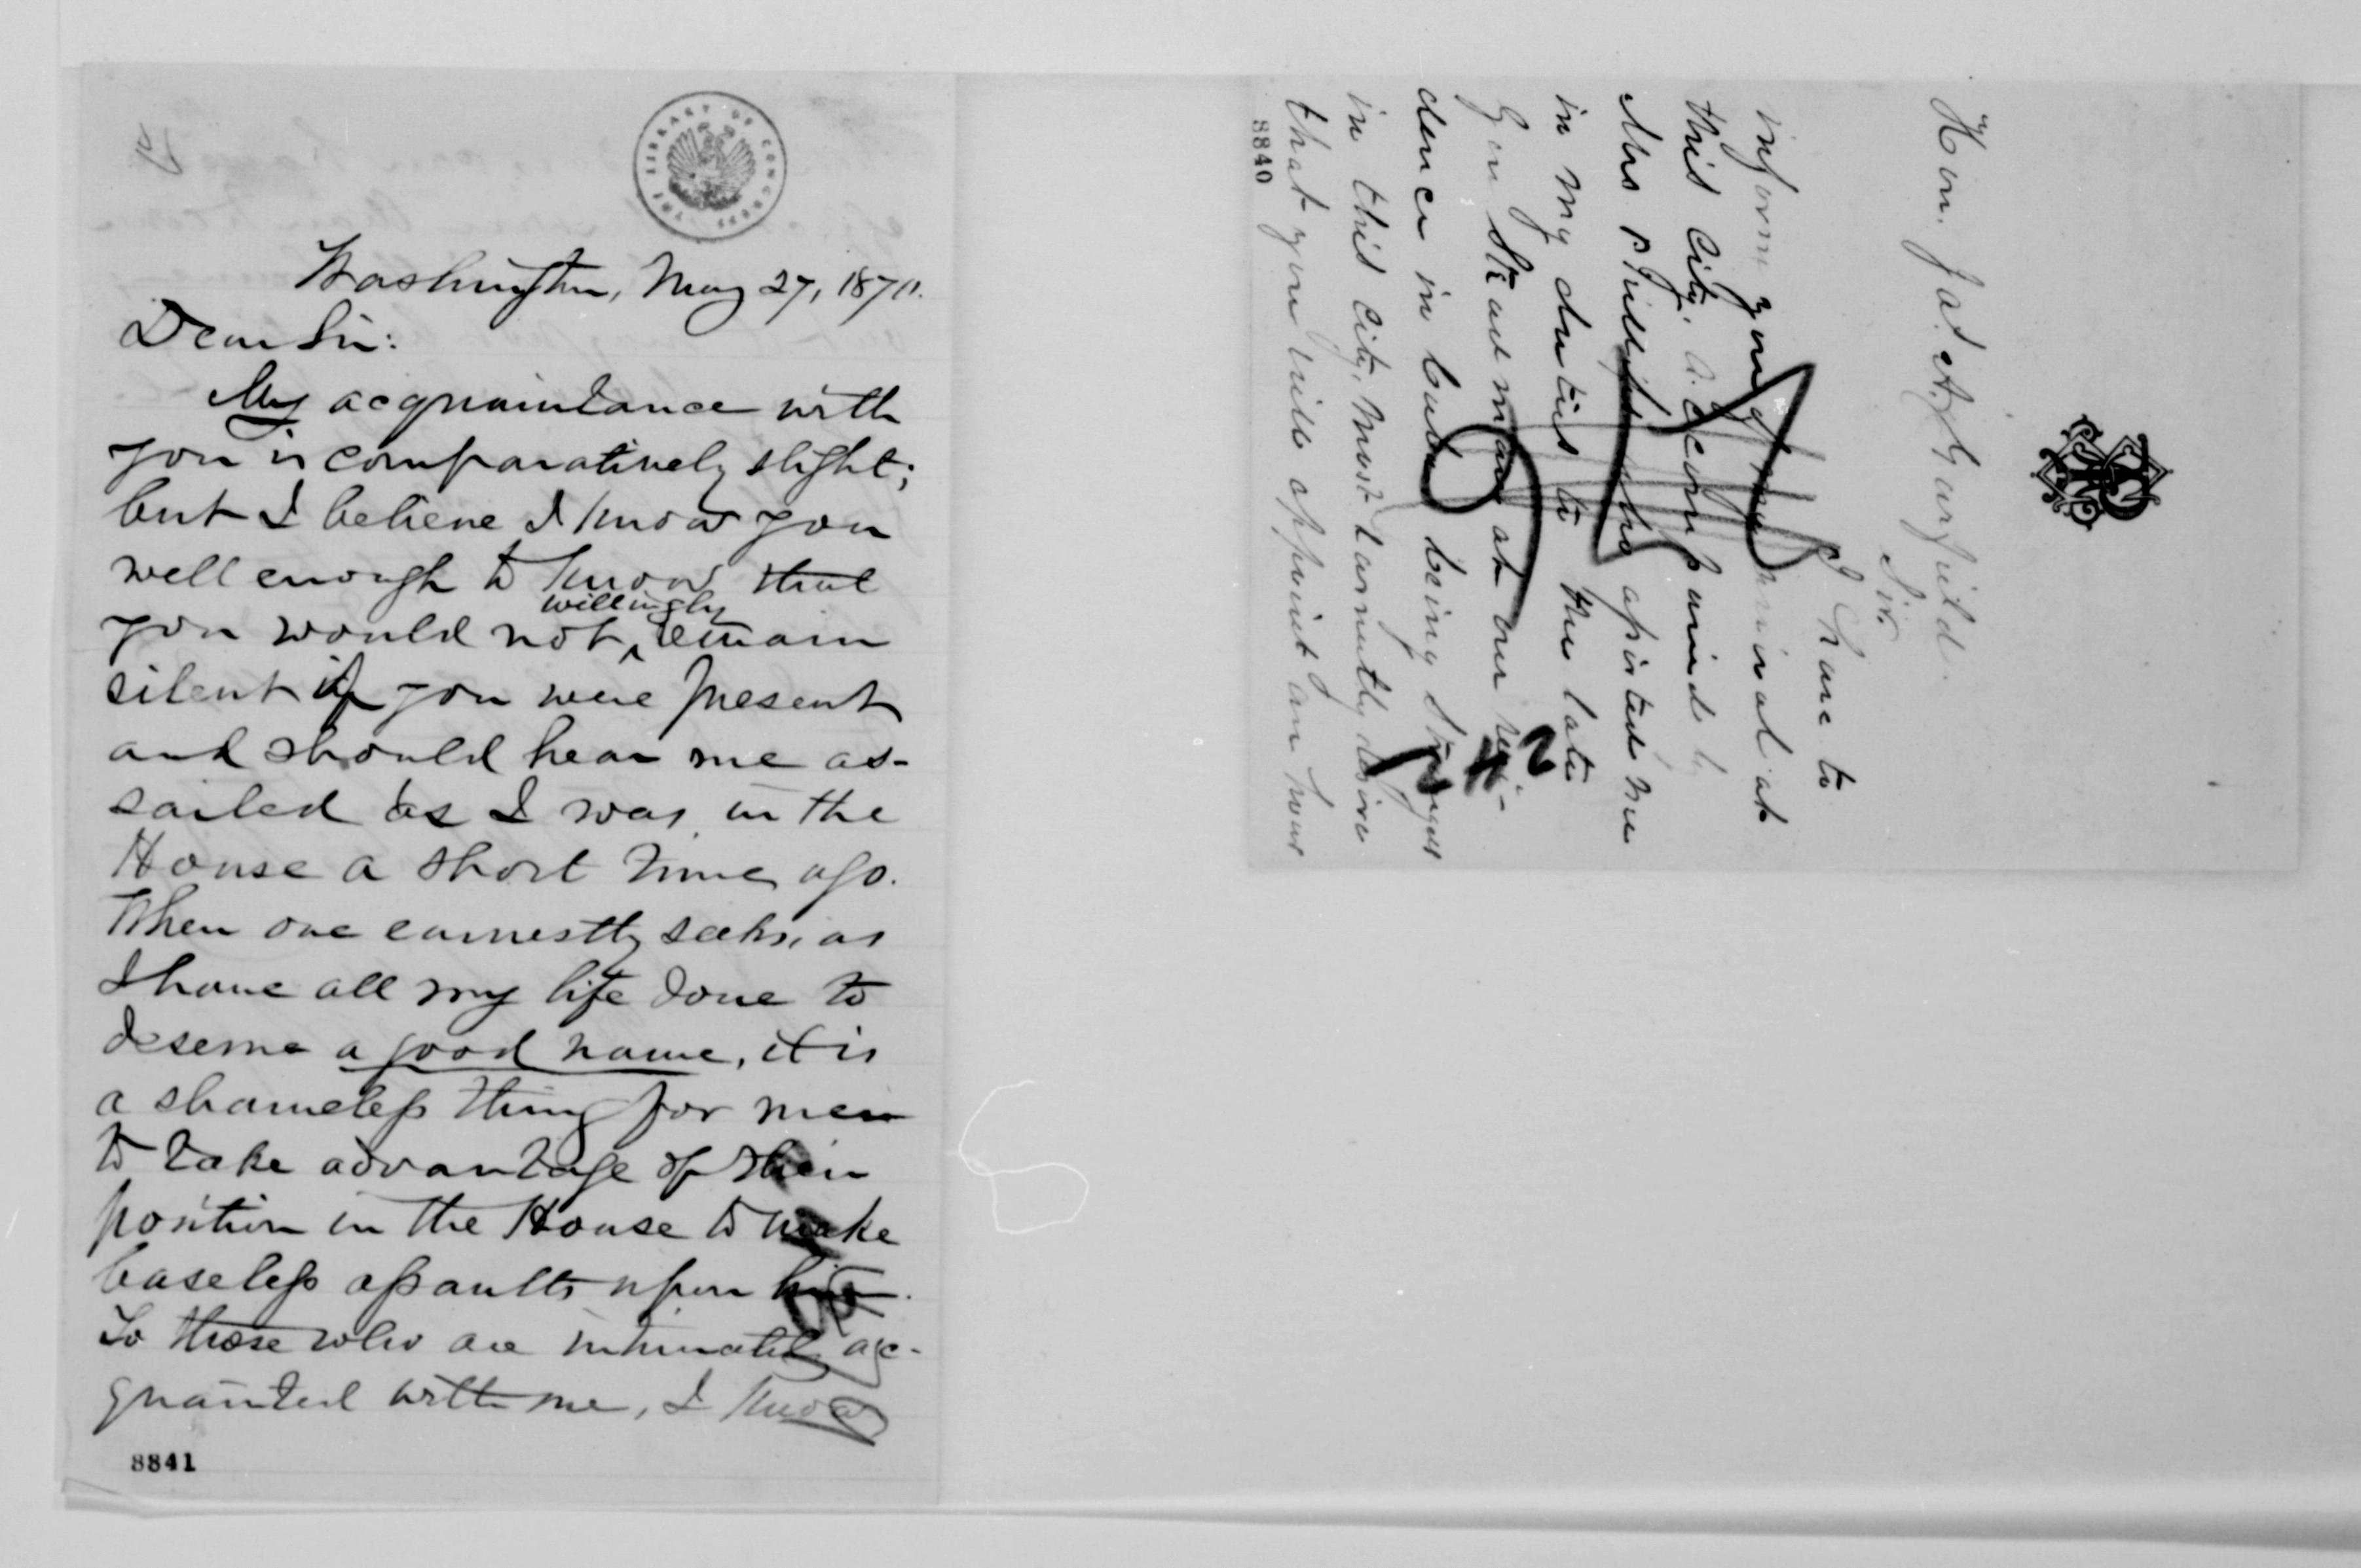 THE LIBRARY OF CONGRESS
Washington, May 27, 1870.
Dear Sir:
My acquaintance with
you is comparatively slight;
but I believe I know you
well enough to know that
you would not willingly remain
silent if you were present
and should hear me as-
sailed as I was in the
House a short time ago.
When one earnestly seeks, as
I have all my life done to
deserve a good name, it is
a shameless thing for men
to take advantage of their
position in the House to make
baseless assaults upon him.
To those who are intimately ac-
quainted with me, I know
8841
Hon. Jas. A. Garfield.
Sir.
I have to
inform you of my arrival at
this city. accompanied by
Mrs who assisted me
in my duties to the late
Gen Steadman at our resi-
dence in being strangers
in this city, most earnestly desire
that you will appoint an hour
8840